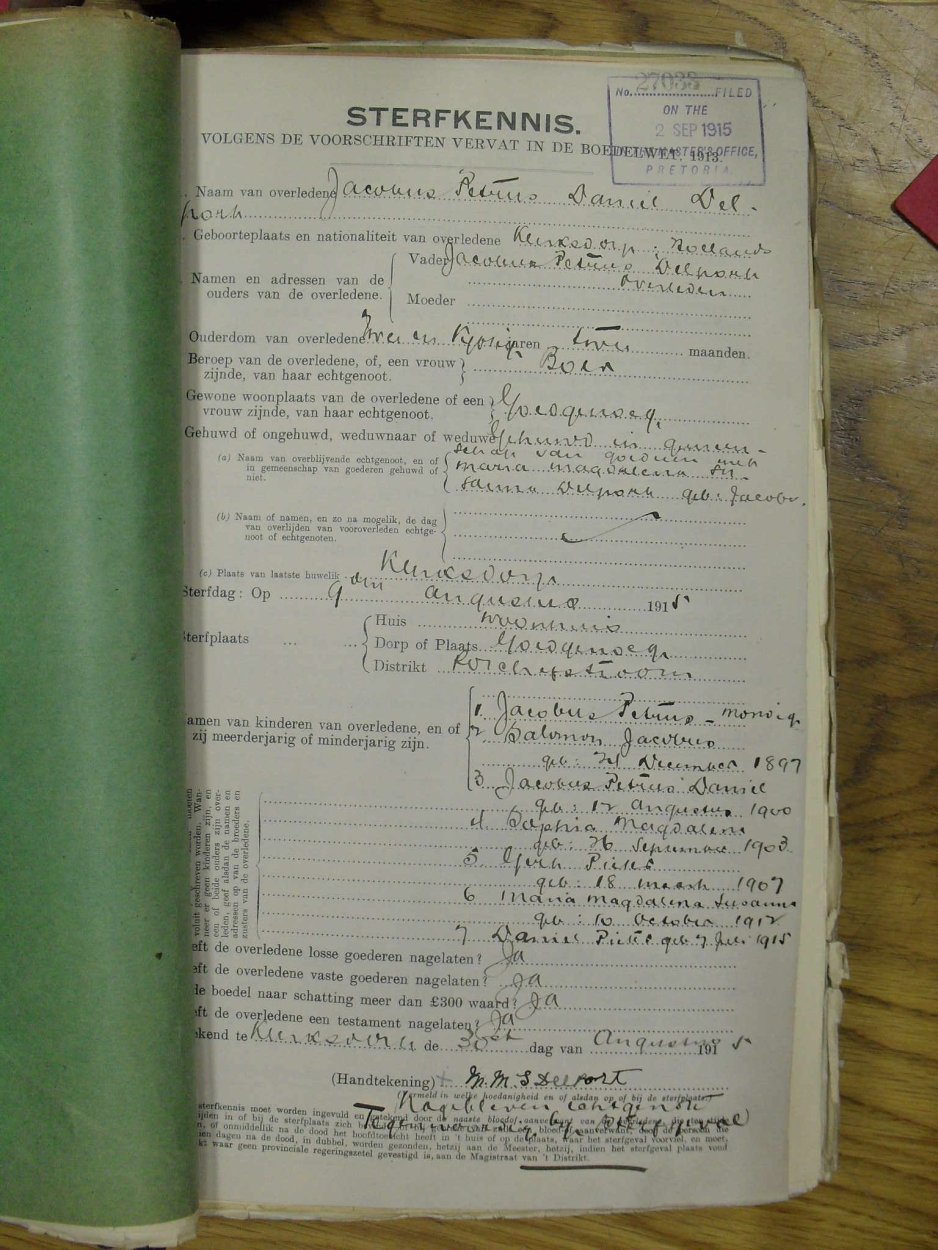 No. 27033 FILED
ON THE
2 SEP 1915
MASTER'S OFFICE,
PRETORIA.
STERFKENNIS.
VOLGENS DE VOORSCHRIFTEN VERVAT IN DE BOEDELWET. 1913.
. Naam van overledene Jacobus Petrus Daniel Del-
port
. Geboorteplaats en nationaliteit van overledene Klerksdorp : Hollands
. Namen en adressen van de ouders van de overledene.
Vader Jacobus Petrus Delport
overleden
Moeder
Ouderdom van overledene Twee en Vyftig jaren twee maanden.
Beroep van de overledene, of, een vrouw zijnde, van haar echtgenoot. Boer
Gewone woonplaats van de overledene of een vrouw zijnde, van haar echtgenoot. Goedgenoeg
Gehuwd of ongehuwd, weduwnaar of weduwe Gehuwd in gemeen-
(a) Naam van overblijvende echtgenoot, en of in gemeenschap van goederen gehuwd of niet.
schap van goederen met
Maria Magdalena Su-
sanna Delport geb: Jacobs.
(b) Naam of namen, en zo na mogelik, de dag van overlijden van vooroverleden echtgenoot of echtgenoten.
(c) Plaats van laatste huwelik Klerksdorp
Sterfdag: Op 9 den Augustus 1915
Sterfplaats ... ...
Huis woonhuis
Dorp of Plaats Goedgenoeg
Distrikt Potchefstroom
amen van kinderen van overledene, en of zij meerderjarig of minderjarig zijn.
1 Jacobus Petrus - mondig
2 Salomon Jacobus
geb: December 1897
3 Jacobus Petrus Daniel
geb: 12 Augustus 1900
4 Sophia Magdalena
geb: 26 September 1903
5 Gert Pieter
geb: 18 Maart 1907
6 Maria Magdalena Susanna
geb: 10 October 1912
7 Daniel Pieter geb 7 Juli 1915
moeten
voluit geschreven worden. Wan-
neer er geen kinderen zijn, en
een of beide ouders zijn over-
leden, geef alsdan de namen en
adressen op van de broeders en
zusters van de overledene.
eft de overledene losse goederen nagelaten? Ja
eft de overledene vaste goederen nagelaten? Ja
de boedel naar schatting meer dan £300 waard? Ja
eft de overledene een testament nagelaten? Ja
ekend te Klerksdorp de 30st dag van Augustus 1915
(Handtekening) M. M. S Delport
(Vermeld in welke hoedanigheid en of alsdan op of bij de sterfplaats)
Nagebleven echtgenote
Tegenwoordig by
sterfkennis moet worden ingevuld en getekend door de naaste bloed- of aanverwant van de overledene, die ten
ijden in of bij de sterfplaats
n, of onmiddellik na de dood het hoofdtoezicht heeft in 't huis of op de plaats, waar het sterfgeval voorviel, en moet,
en dagen na de dood, in dubbel, worden gezonden, hetzij aan de Meester, hetzij, indien het sterfgeval plaats vond
kt waar geen provinciale regeringszetel gevestigd is, aan de Magistraat van 't Distrikt.